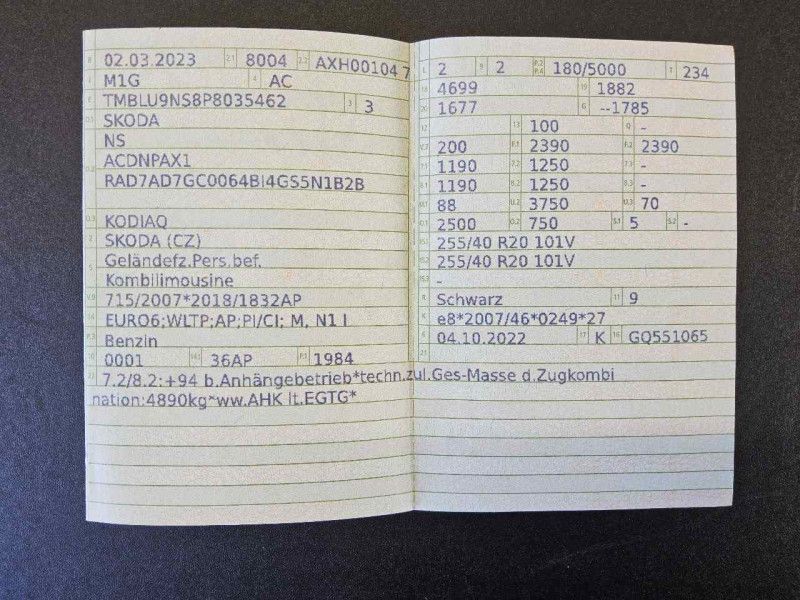 B 02.03.2023 2.1 8004 2.2 AXH00104 7
J M1G 4 AC
E TMBLU9NS8P8035462 3 3
D.1 SKODA
NS
D.2 ACDNPAX1
RAD7AD7GC0064BI4GS5N1B2B
D.3 KODIAQ
2 SKODA (CZ)
5 Geländefz.Pers.bef.
Kombilimousine
V.9 715/2007*2018/1832AP
14 EURO6;WLTP;AP;PI/CI; M, N1 I
P.3 Benzin
10 0001 14.1 36AP P.1 1984
22 7.2/8.2:+94 b.Anhängebetrieb*techn.zul.Ges-Masse d.Zugkombi
nation:4890kg*ww.AHK lt.EGTG*
L 2 9 2 P.2 P.4 180/5000 T 234
18 4699 19 1882
20 1677 G --1785
12 13 100 Q -
V.7 200 F.1 2390 F.2 2390
7.1 1190 7.2 1250 7.3 -
8.1 1190 8.2 1250 8.3 -
U.1 88 U.2 3750 U.3 70
O.1 2500 O.2 750 S.1 5 S.2 -
15.1 255/40 R20 101V
15.2 255/40 R20 101V
15.3 -
R Schwarz 11 9
K e8*2007/46*0249*27
6 04.10.2022 17 K 16 GQ551065
21